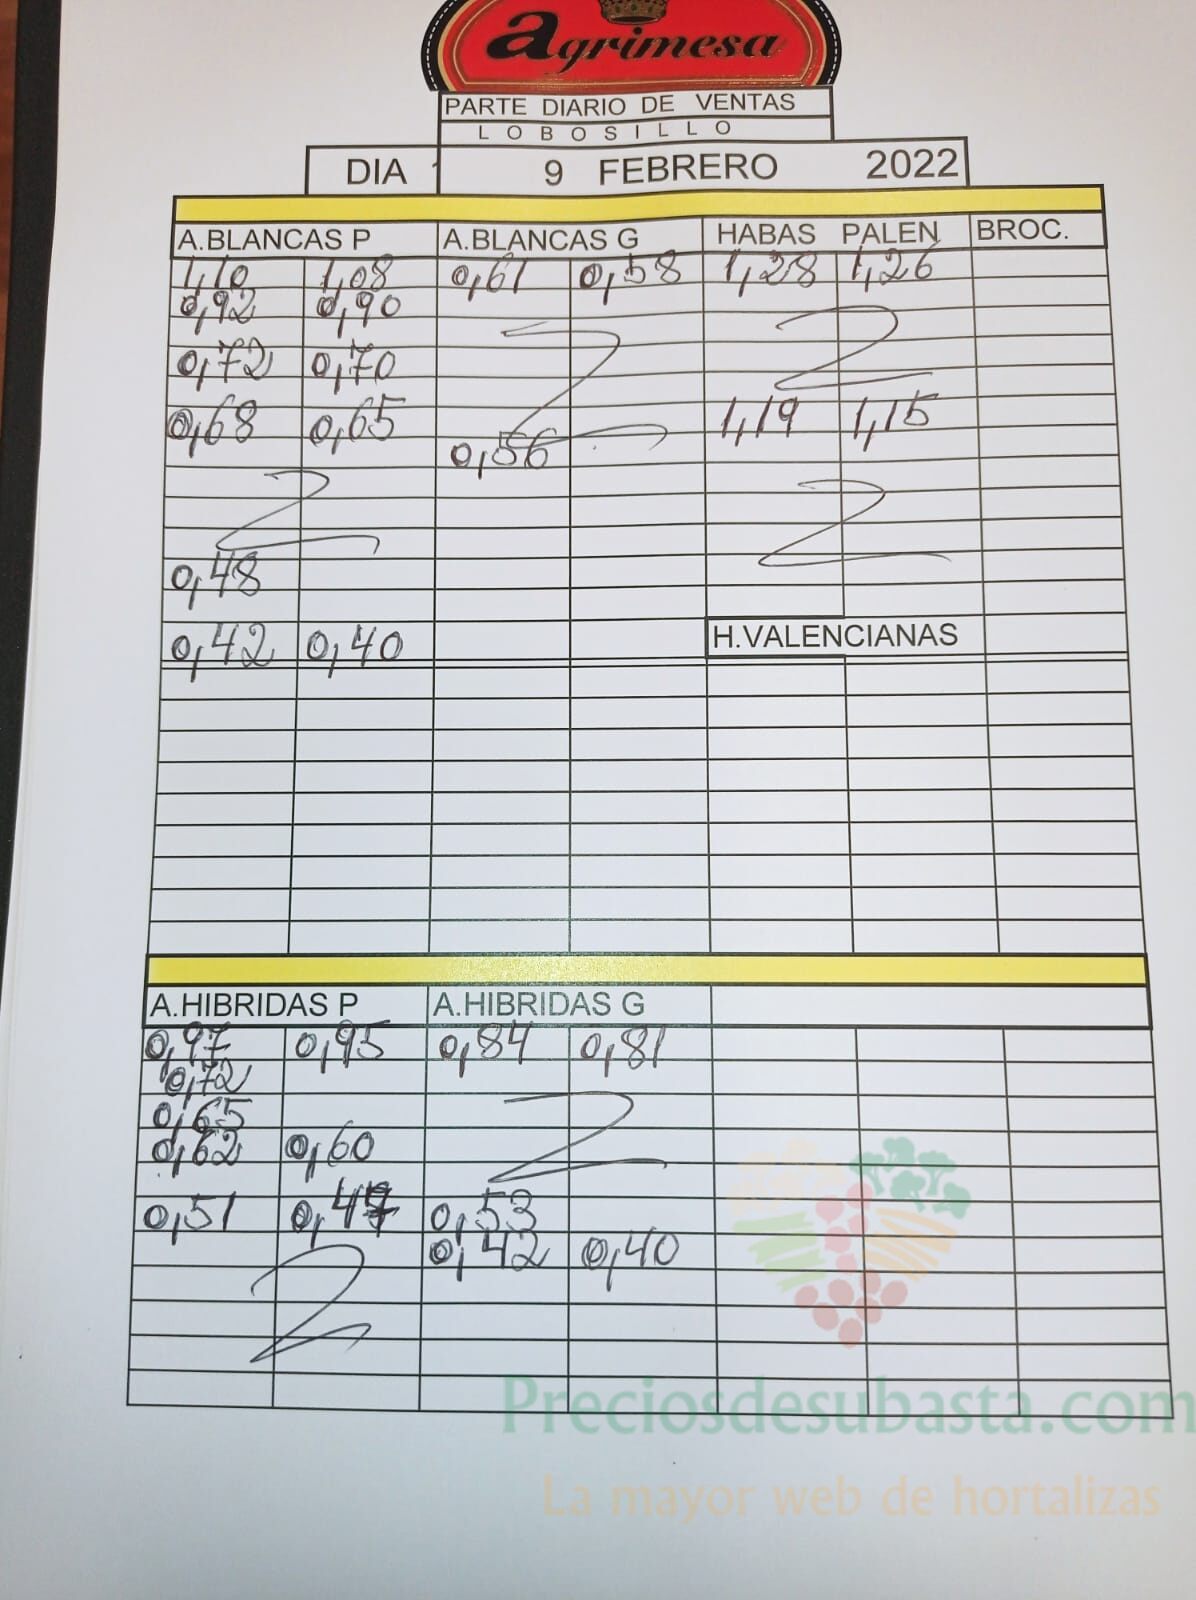 agrimesa
PARTE DIARIO DE VENTAS
LOBOSILLO
DIA 9 FEBRERO 2022
A.BLANCAS P A.BLANCAS G HABAS PALEN BROC.
1,10 1,08 0,61 0,58 1,28 1,26
0,92 0,90
0,72 0,70
0,68 0,65 1,19 1,15
0,56
0,48
0,42 0,40 H.VALENCIANAS
A.HIBRIDAS P A.HIBRIDAS G
0,97 0,95 0,84 0,81
0,72
0,65
0,62 0,60
0,51 0,53
0,42 0,40
Preciosdesubasta.com
La mayor web de hortalizas